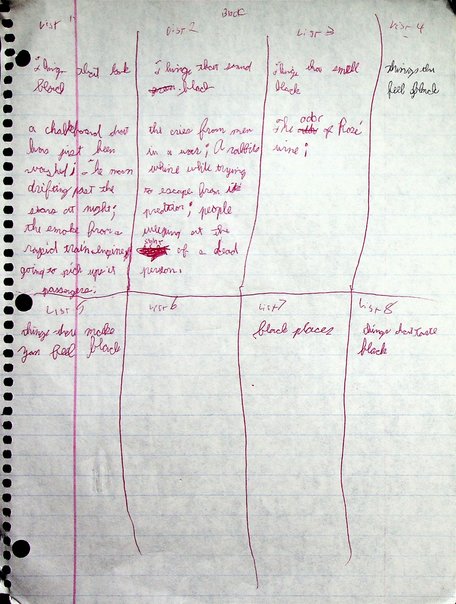 Black
List 1
Things that look
black
a chalkboard that
has just been
washed; The moon
drifting past the
stars at night;
the smoke from a
rapid train engine
going to pick up is
passengers.
List 2
Things that sound
black
the cries from men
in a war; A rabbits
whine while trying
to escape from it
predator; people
weeping at the
sight of a dead
person.
List 3
Things that smell
black
The odor of Rosé
wine;
List 4
things tha
feel black
List 5
things that make
you feel black
List 6
List 7
black places
List 8
things that taste
black